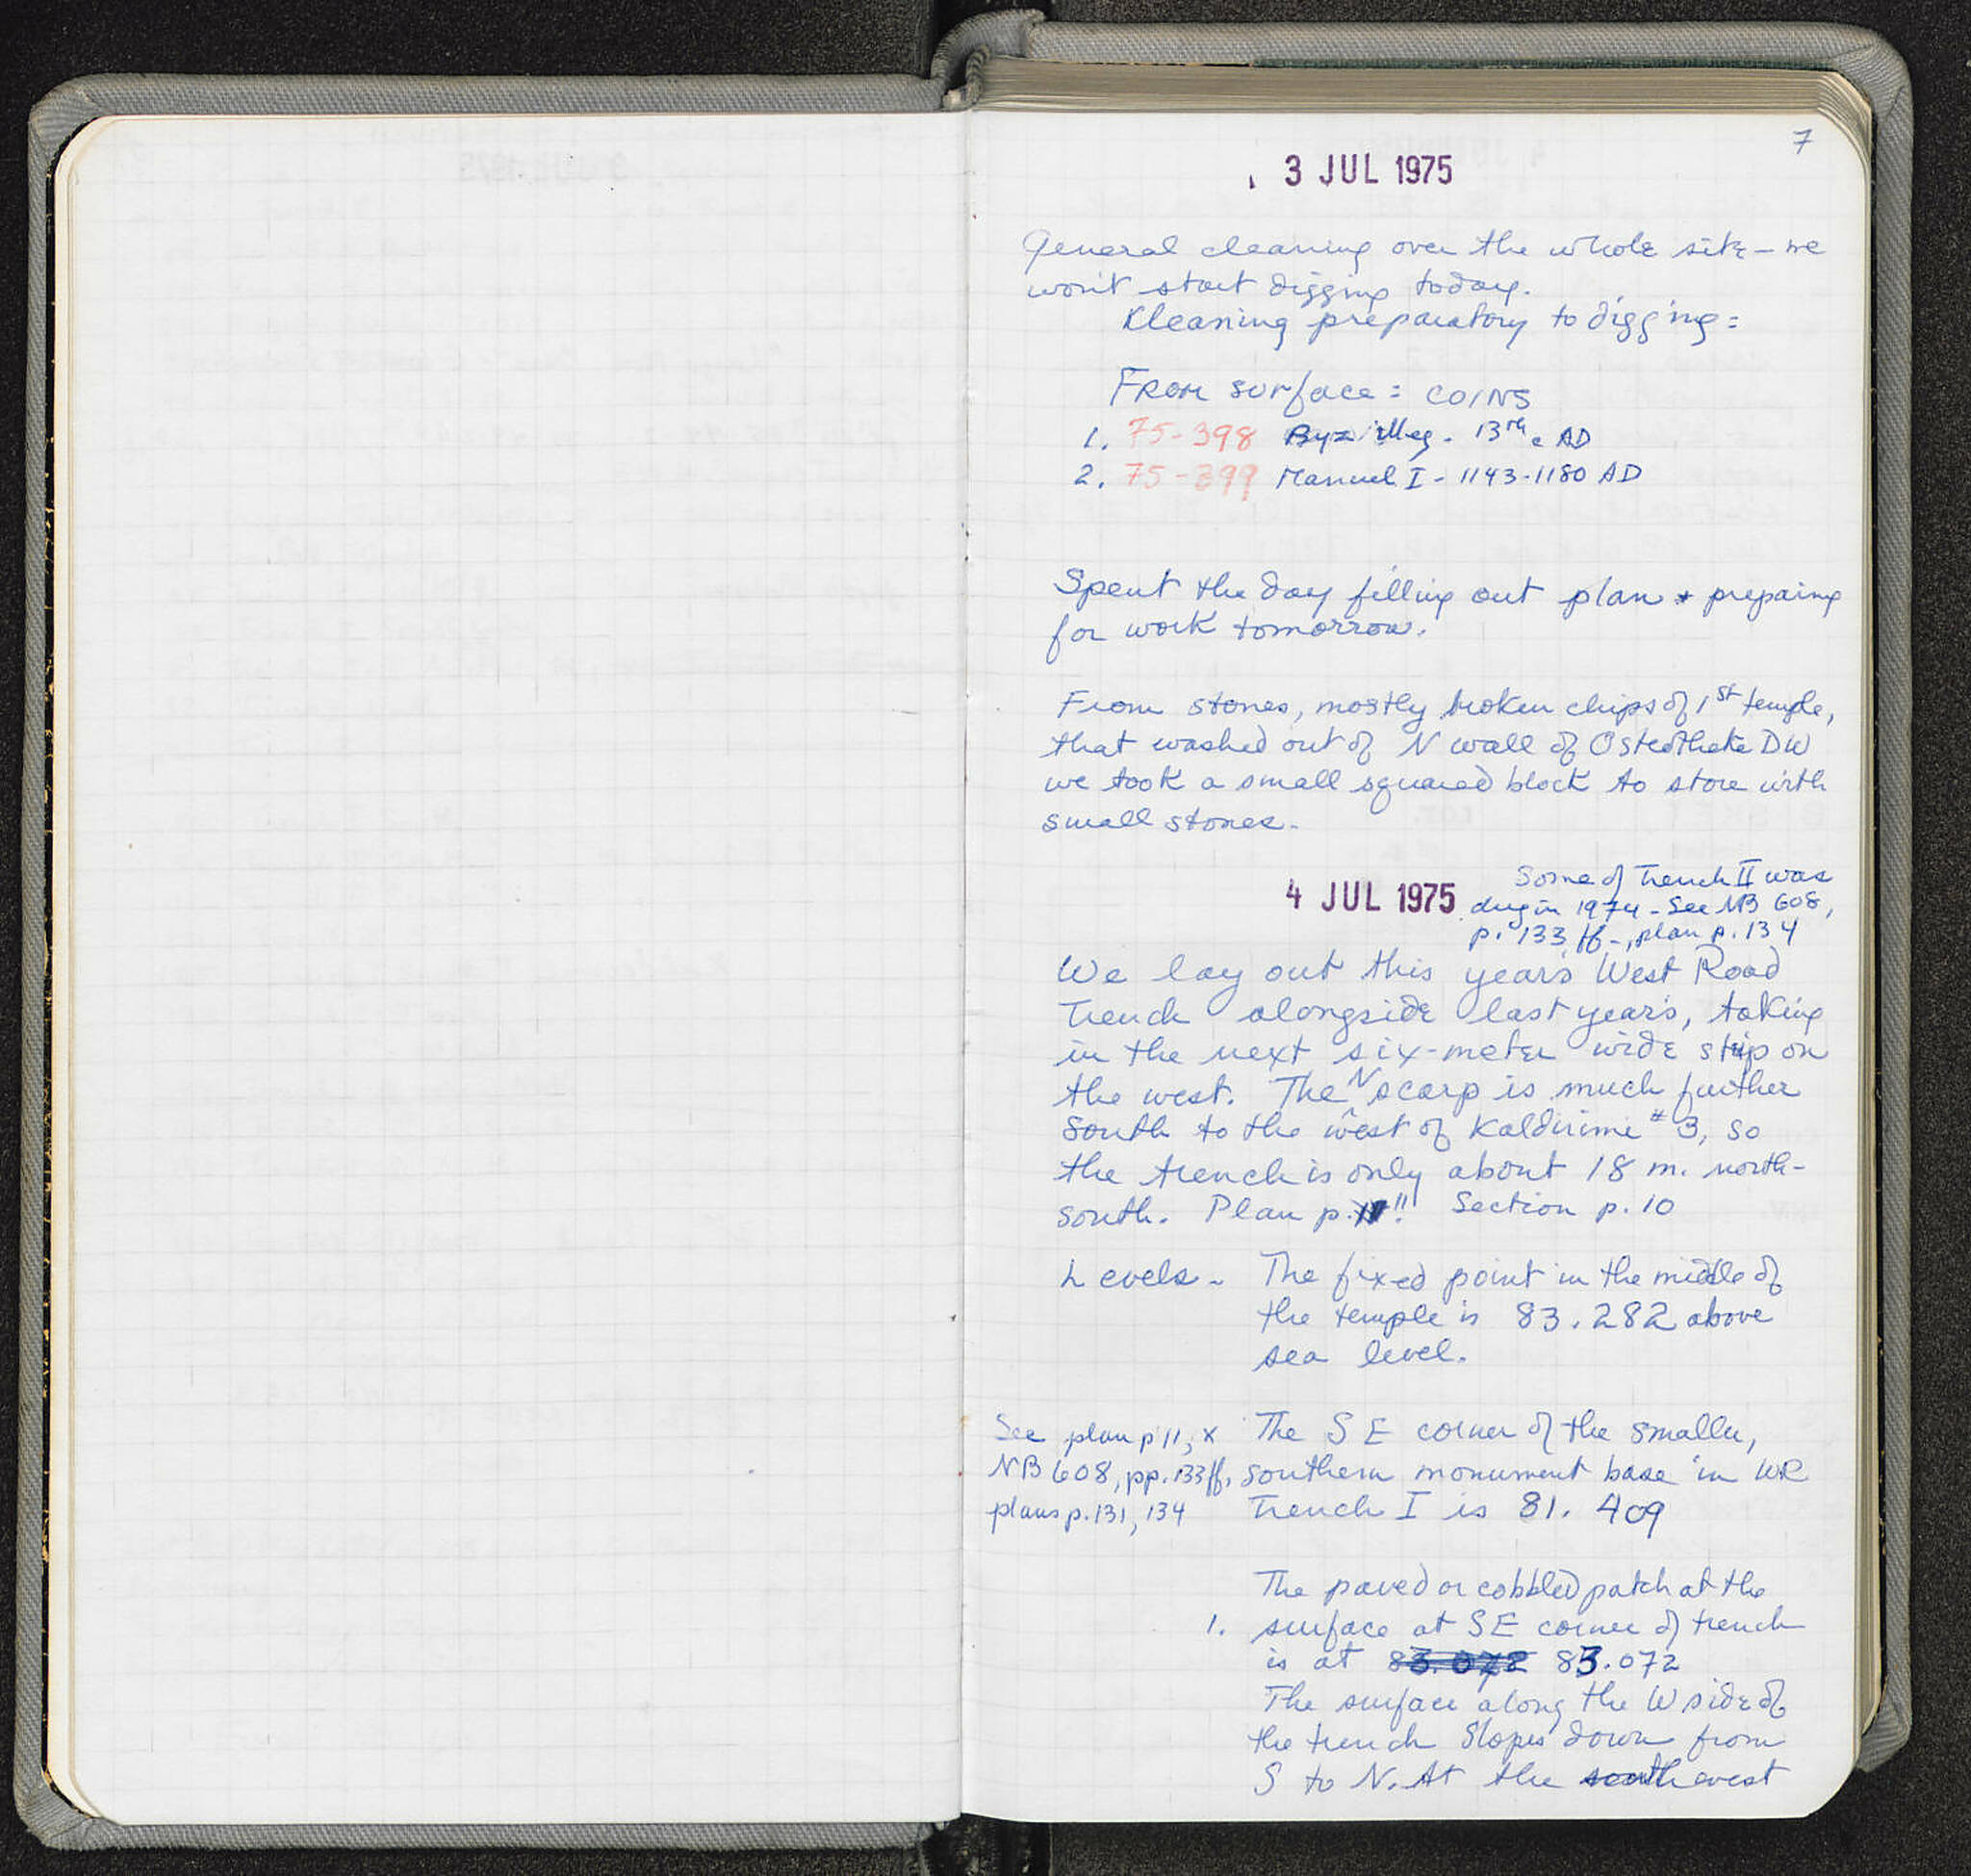 7
3 JUL 1975
General cleaning over the whole site - we
won't start digging today.
Kleaning preparatory to digging =
From surface = COINS
1. 75-398 Byz illeg. 13th c AD
2. 75-399 Manuel I - 1143-1180 AD
Spent the day filling out plan + preparing
for work tomorrow.
From stones, mostly broken chips of 1st temple,
that washed out of N wall of Osteotheke DW
we took a small squared block to store with
small stones.
4 JUL 1975
Some of Trench II was
dug in 1974 - See NB 608,
p. 133 ff-, plan p. 134
We lay out this year's West Road
Trench alongside last year's, taking
in the next six-meter wide strip on
the west. The N scarp is much further
south to the west of Kaldirimi #3, so
the trench is only about 18 m. north-
south. Plan p. 11! Section p. 10
Levels - The fixed point in the middle of
the temple is 83.282 above
sea level.
See plan p 11, x
NB 608, pp. 133ff,
plans p. 131, 134
The SE corner of the smaller,
southern monument base in WR
Trench I is 81.409
The paved or cobbled patch at the
1. surface at SE corner of trench
is at 83.072 83.072
The surface along the W side of
the trench slopes down from
S to N. At the south west